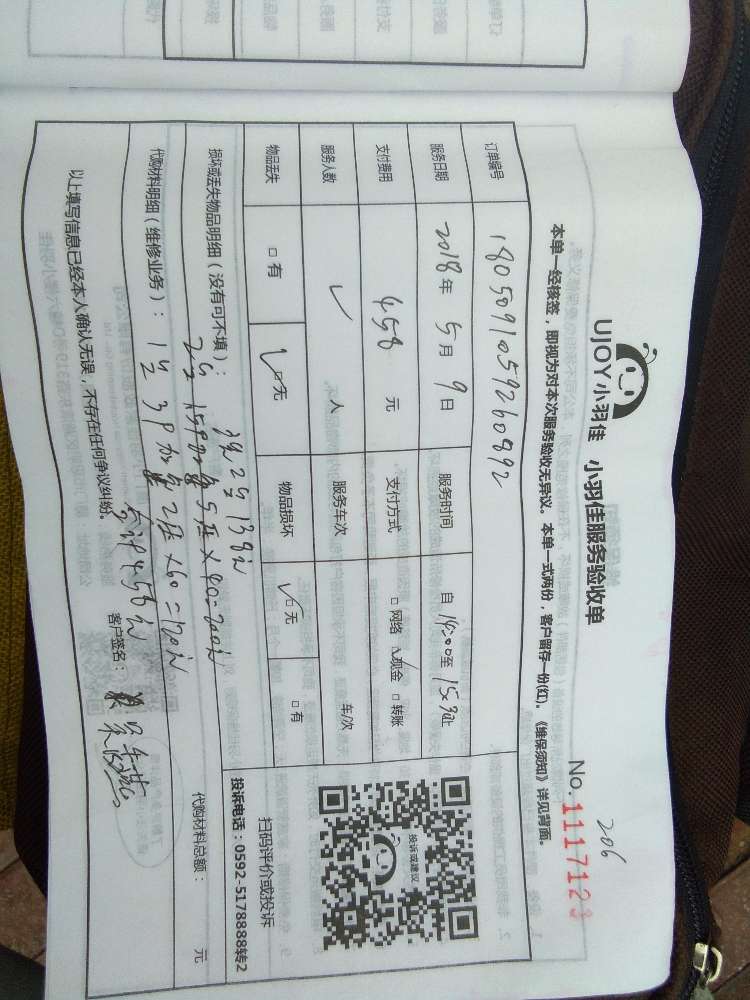 206
UJOY小羽佳 小羽佳服务验收单
No.1117123
本单一经核签，即视为对本次服务验收无异议。本单一式两份，客户留存一份(红)。《维保须知》详见背面。
订单编号 1805091059260892
服务日期 2018年5月9日 服务时间 自14:00至15:30止
支付费用 458元 支付方式 □网络 ☑现金 □转账
服务人数 人 服务车次 车/次
物品丢失 □有 ☑无 物品损坏 ☑无 □有
投诉或建议
扫码评价或投诉
投诉电话：0592-5178888转2
损坏或丢失物品明细（没有可不填）：
2台138元
2台1.5P加 5压×40=200元
代购材料明细（维修业务）： 代购材料总额： 元
1台3P加 2压×60=120元
合计458元
以上填写信息已经本人确认无误，不存在任何争议纠纷。 客户签名：